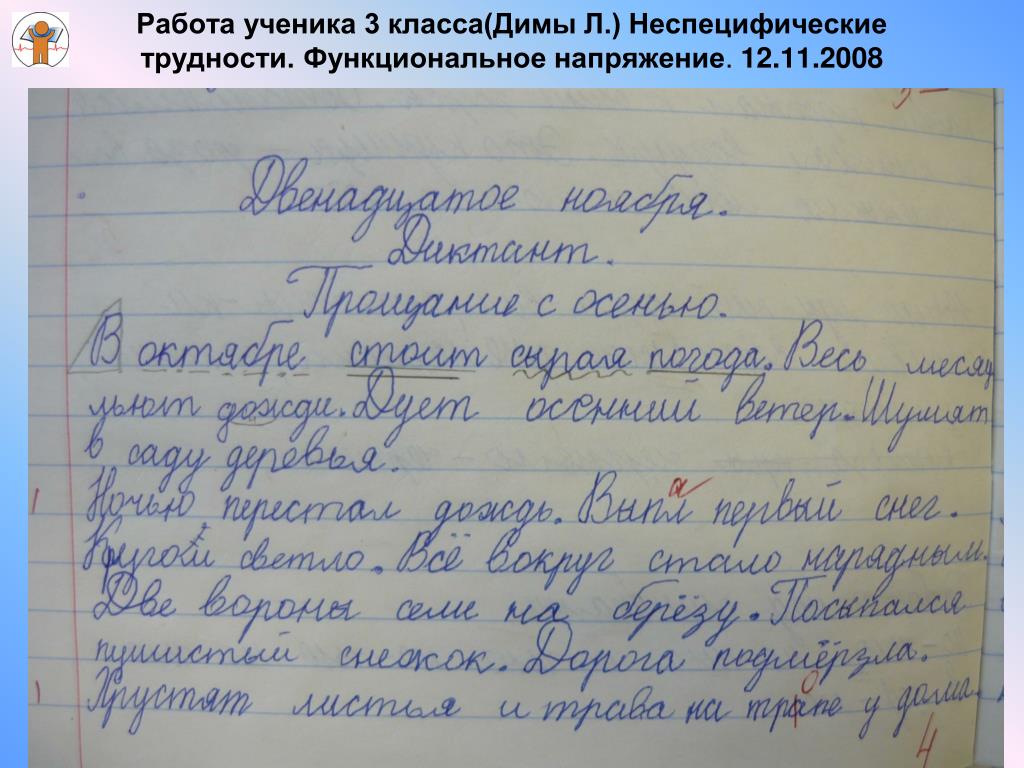 Работа ученика 3 класса(Димы Л.) Неспецифические
трудности. Функциональное напряжение. 12.11.2008
Двенадцатое ноября.
Диктант.
Прощание с осенью.
В октябре стоит сырая погода. Весь месяц
льют дожди. Дует осенний ветер. Шумят
в саду деревья.
Ночью перестал дождь. Выпал первый снег.
Кругом светло. Всё вокруг стало нарядным.
Две вороны сели на берёзу. Посыпался
пушистый снежок. Дорога подмёрзла.
Хрустят листья и трава на тропе у дома.
4